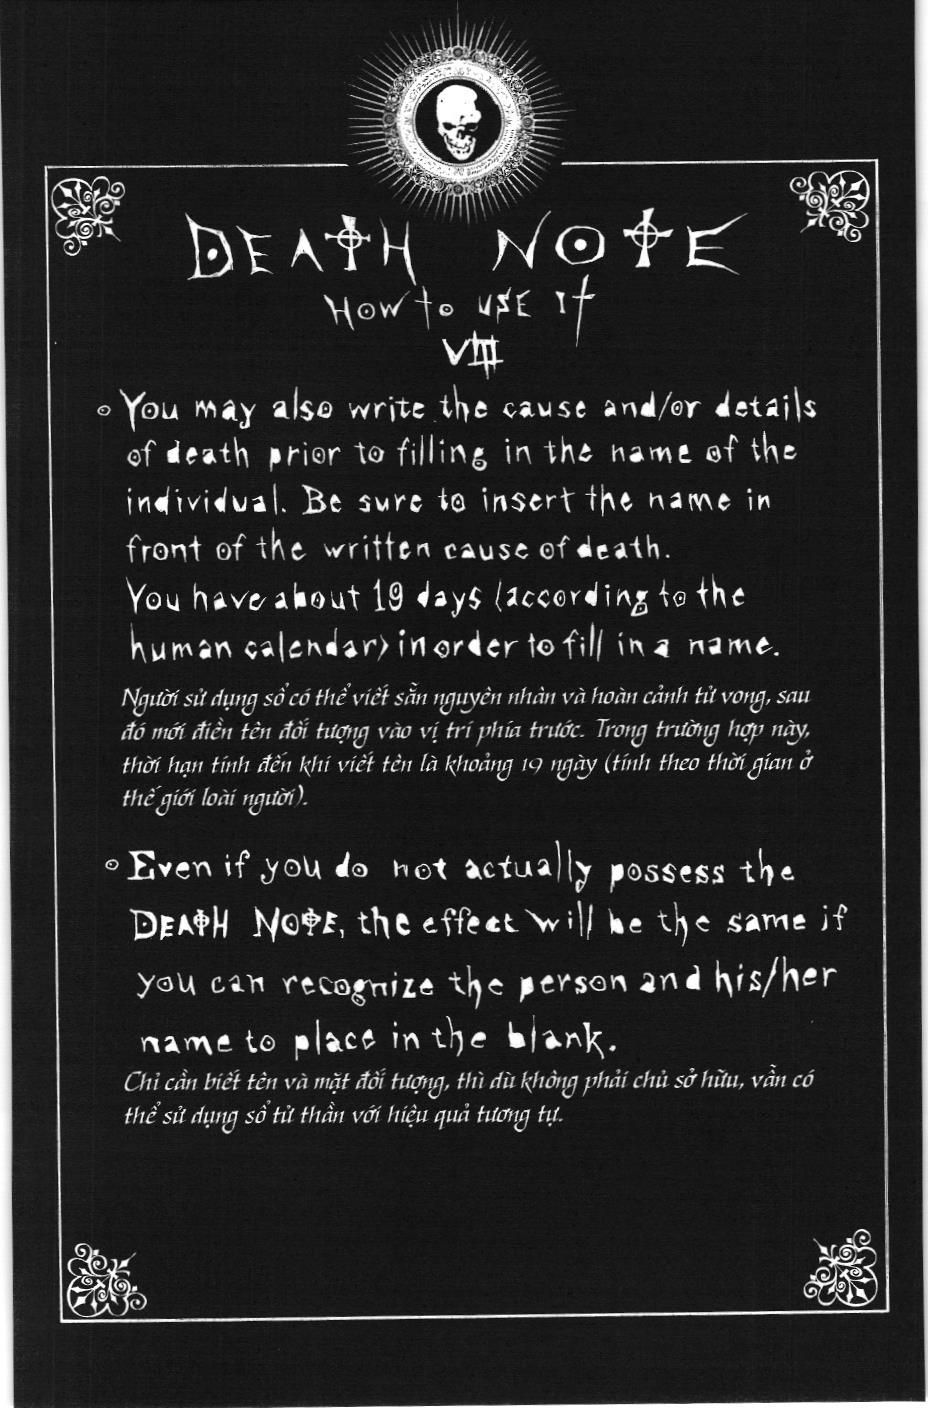 DEATH NOTE
How to use it
VIII
You may also write the cause and/or details
of death prior to filling in the name of the
individual. Be sure to insert the name in
front of the written cause of death.
You have about 19 days (according to the
human calendar) in order to fill in a name.
Người sử dụng sổ có thể viết sẵn nguyên nhân và hoàn cảnh tử vong, sau
đó mới điền tên đối tượng vào vị trí phía trước. Trong trường hợp này,
thời hạn tính đến khi viết tên là khoảng 19 ngày (tính theo thời gian ở
thế giới loài người).
Even if you do not actually possess the
DEATH NOTE, the effect will be the same if
you can recognize the person and his/her
name to place in the blank.
Chỉ cần biết tên và mặt đối tượng, thì dù không phải chủ sở hữu, vẫn có
thể sử dụng sổ tử thần với hiệu quả tương tự.